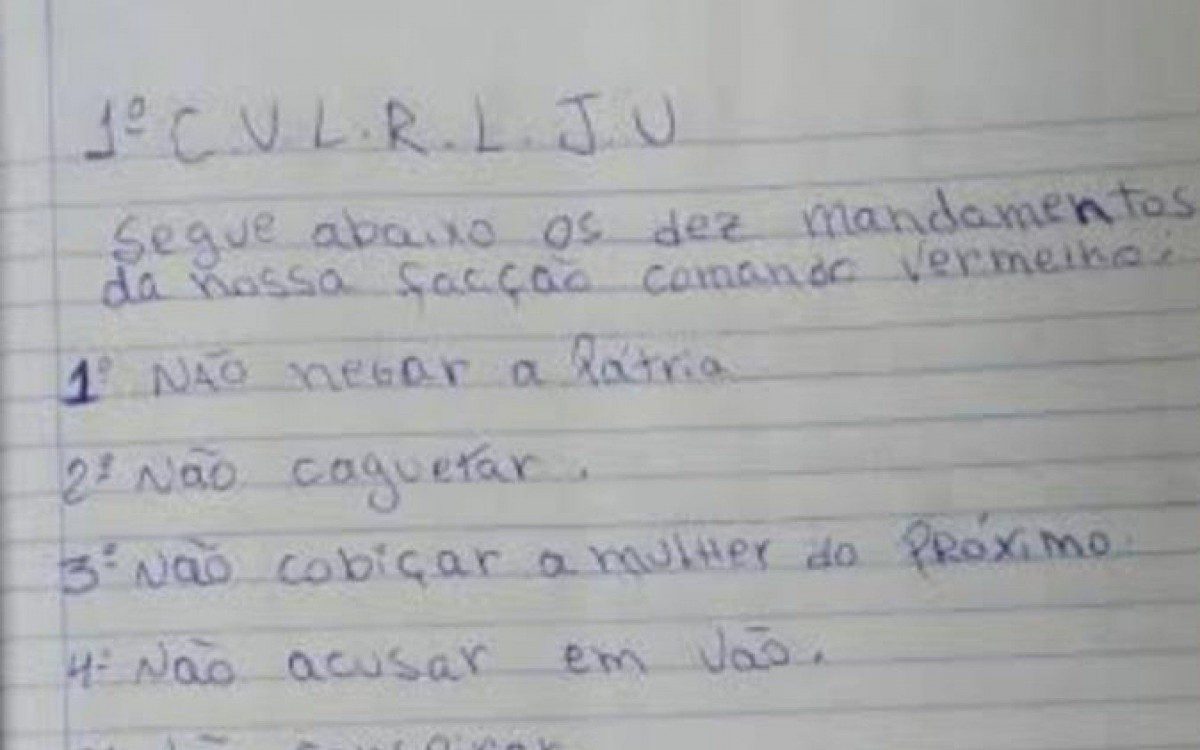 1º C V L. R. L. J. U
Segue abaixo os dez mandamentos
da nossa facção comando vermelho:
1º NÃO negar a Pátria
2º Não caguetar.
3º Não cobiçar a mulher do PRÓXIMO.
4º Não acusar em vão.